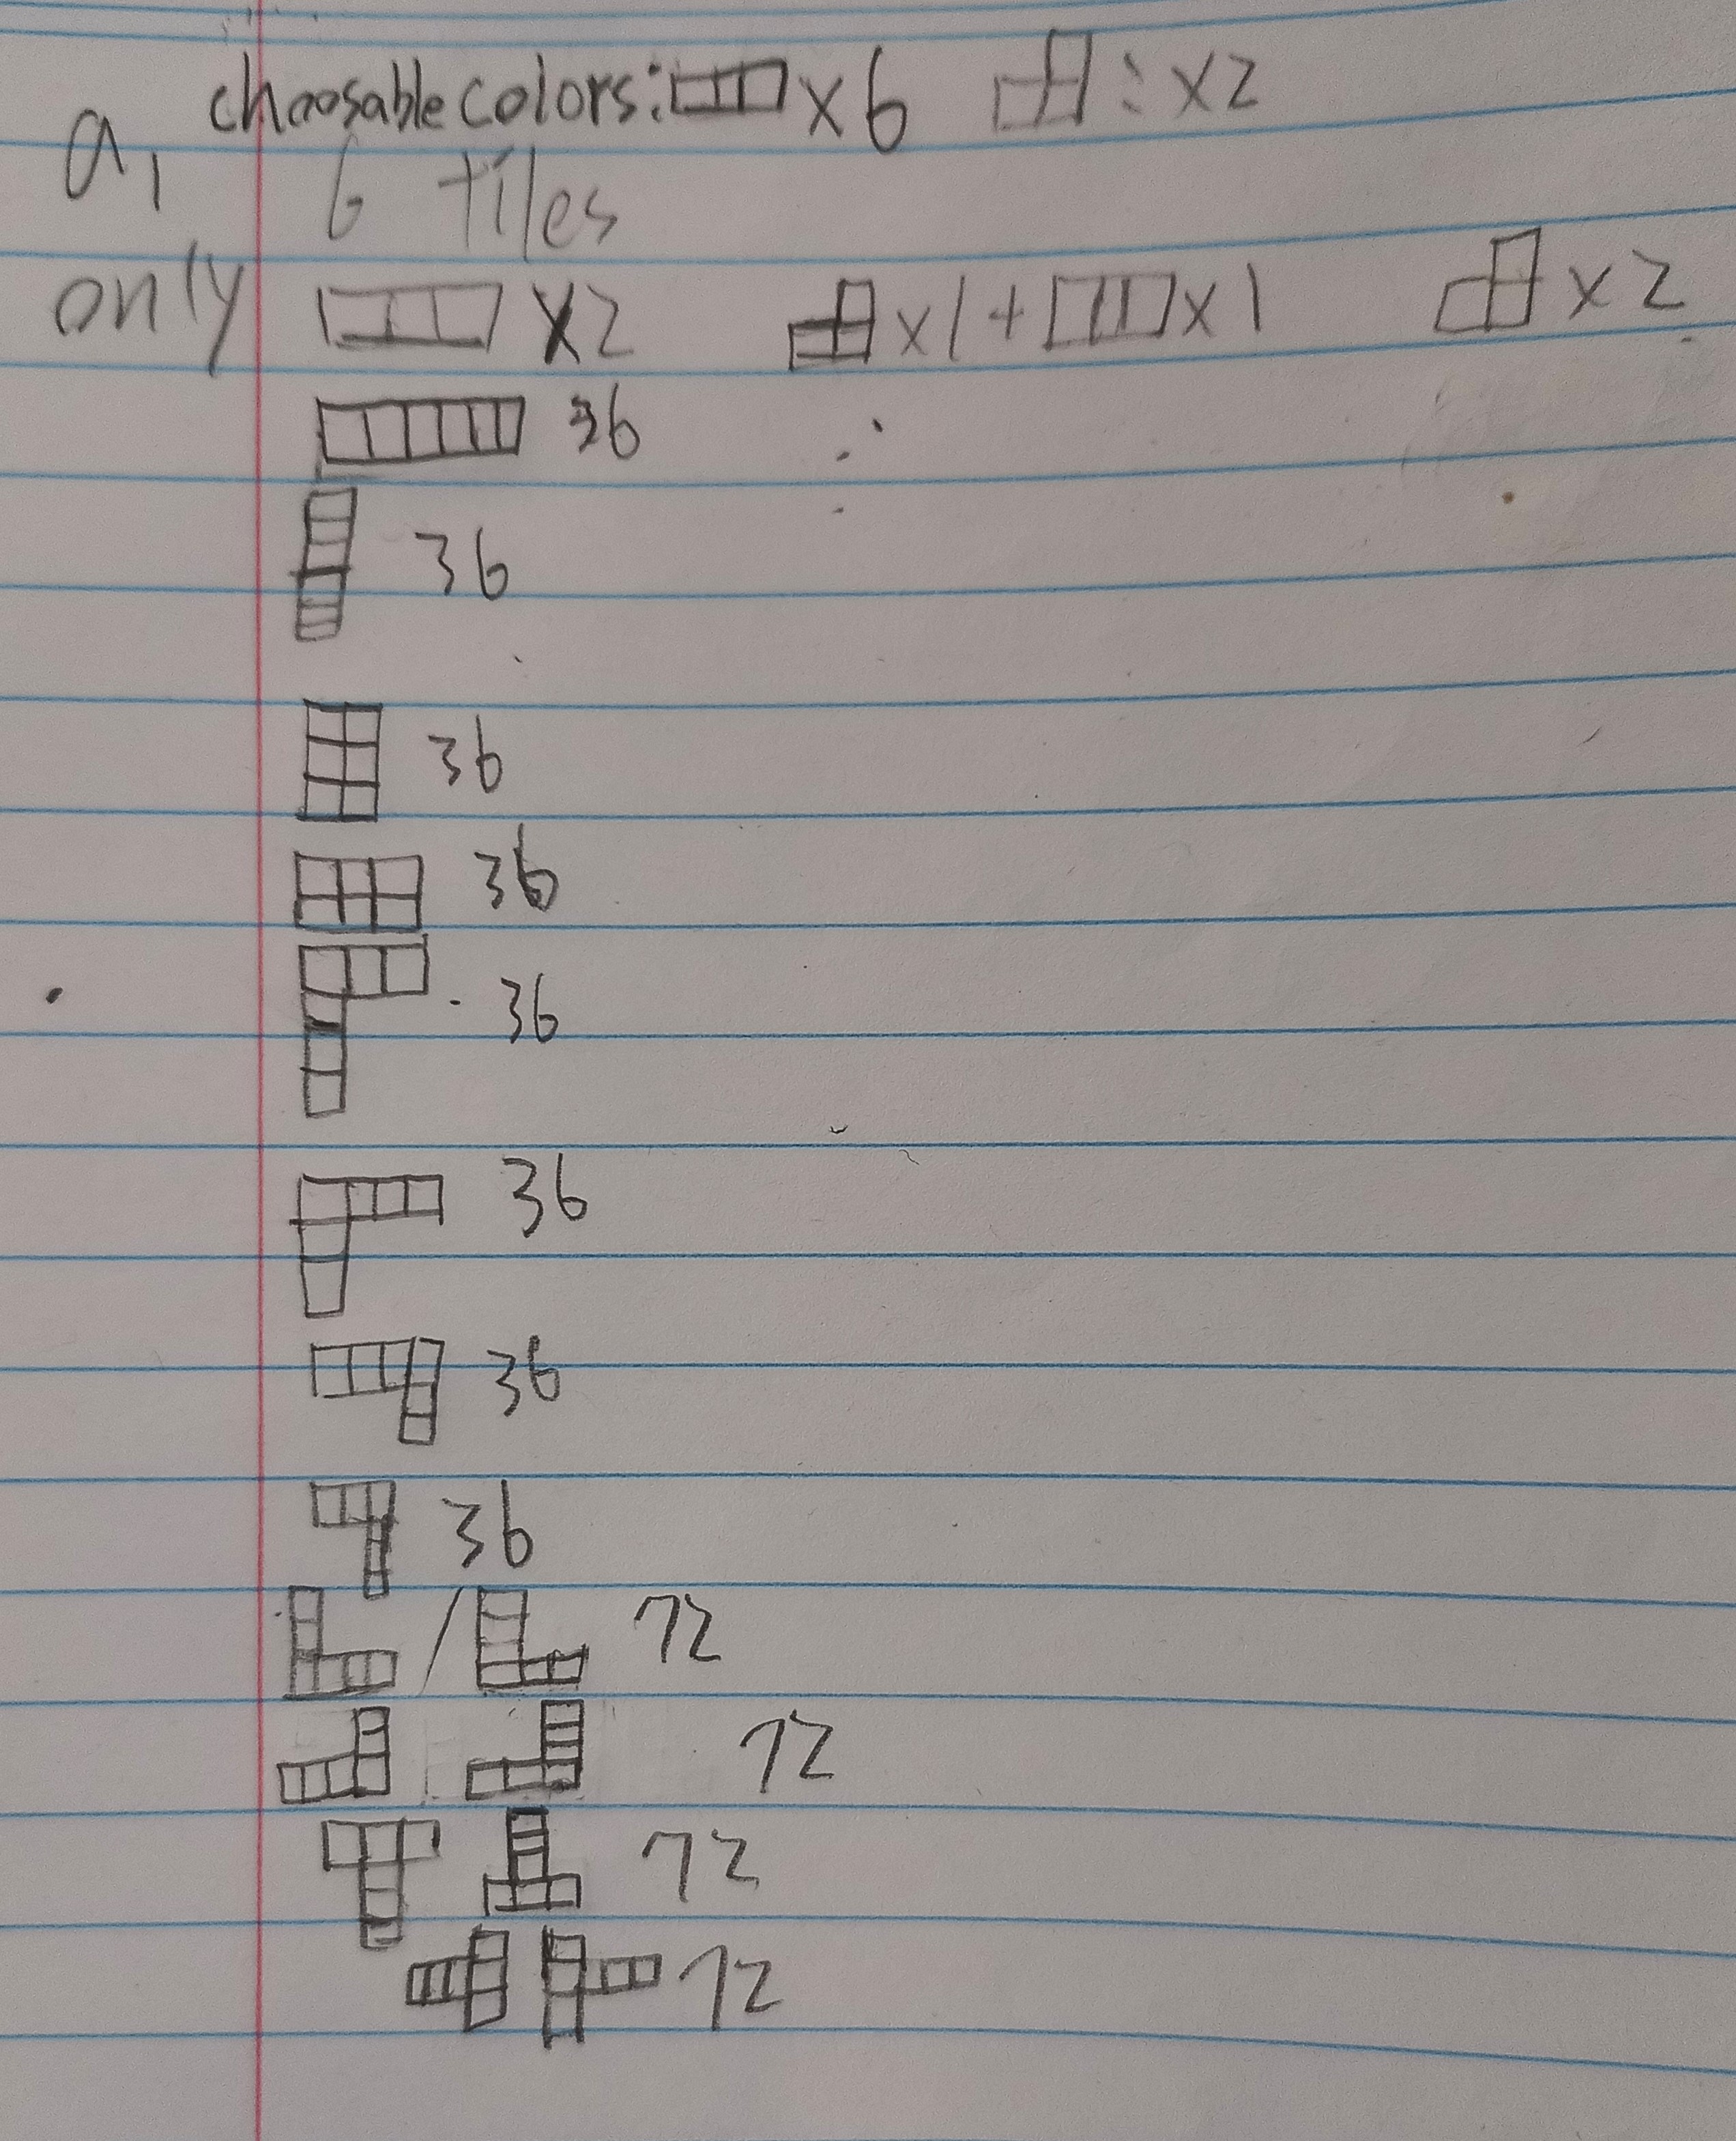 choosable colors: x6 : x2
a, 6 tiles
only x2 x1 + x1 x2
36
36
36
36
36
36
36
36
/ 72
72
72
72